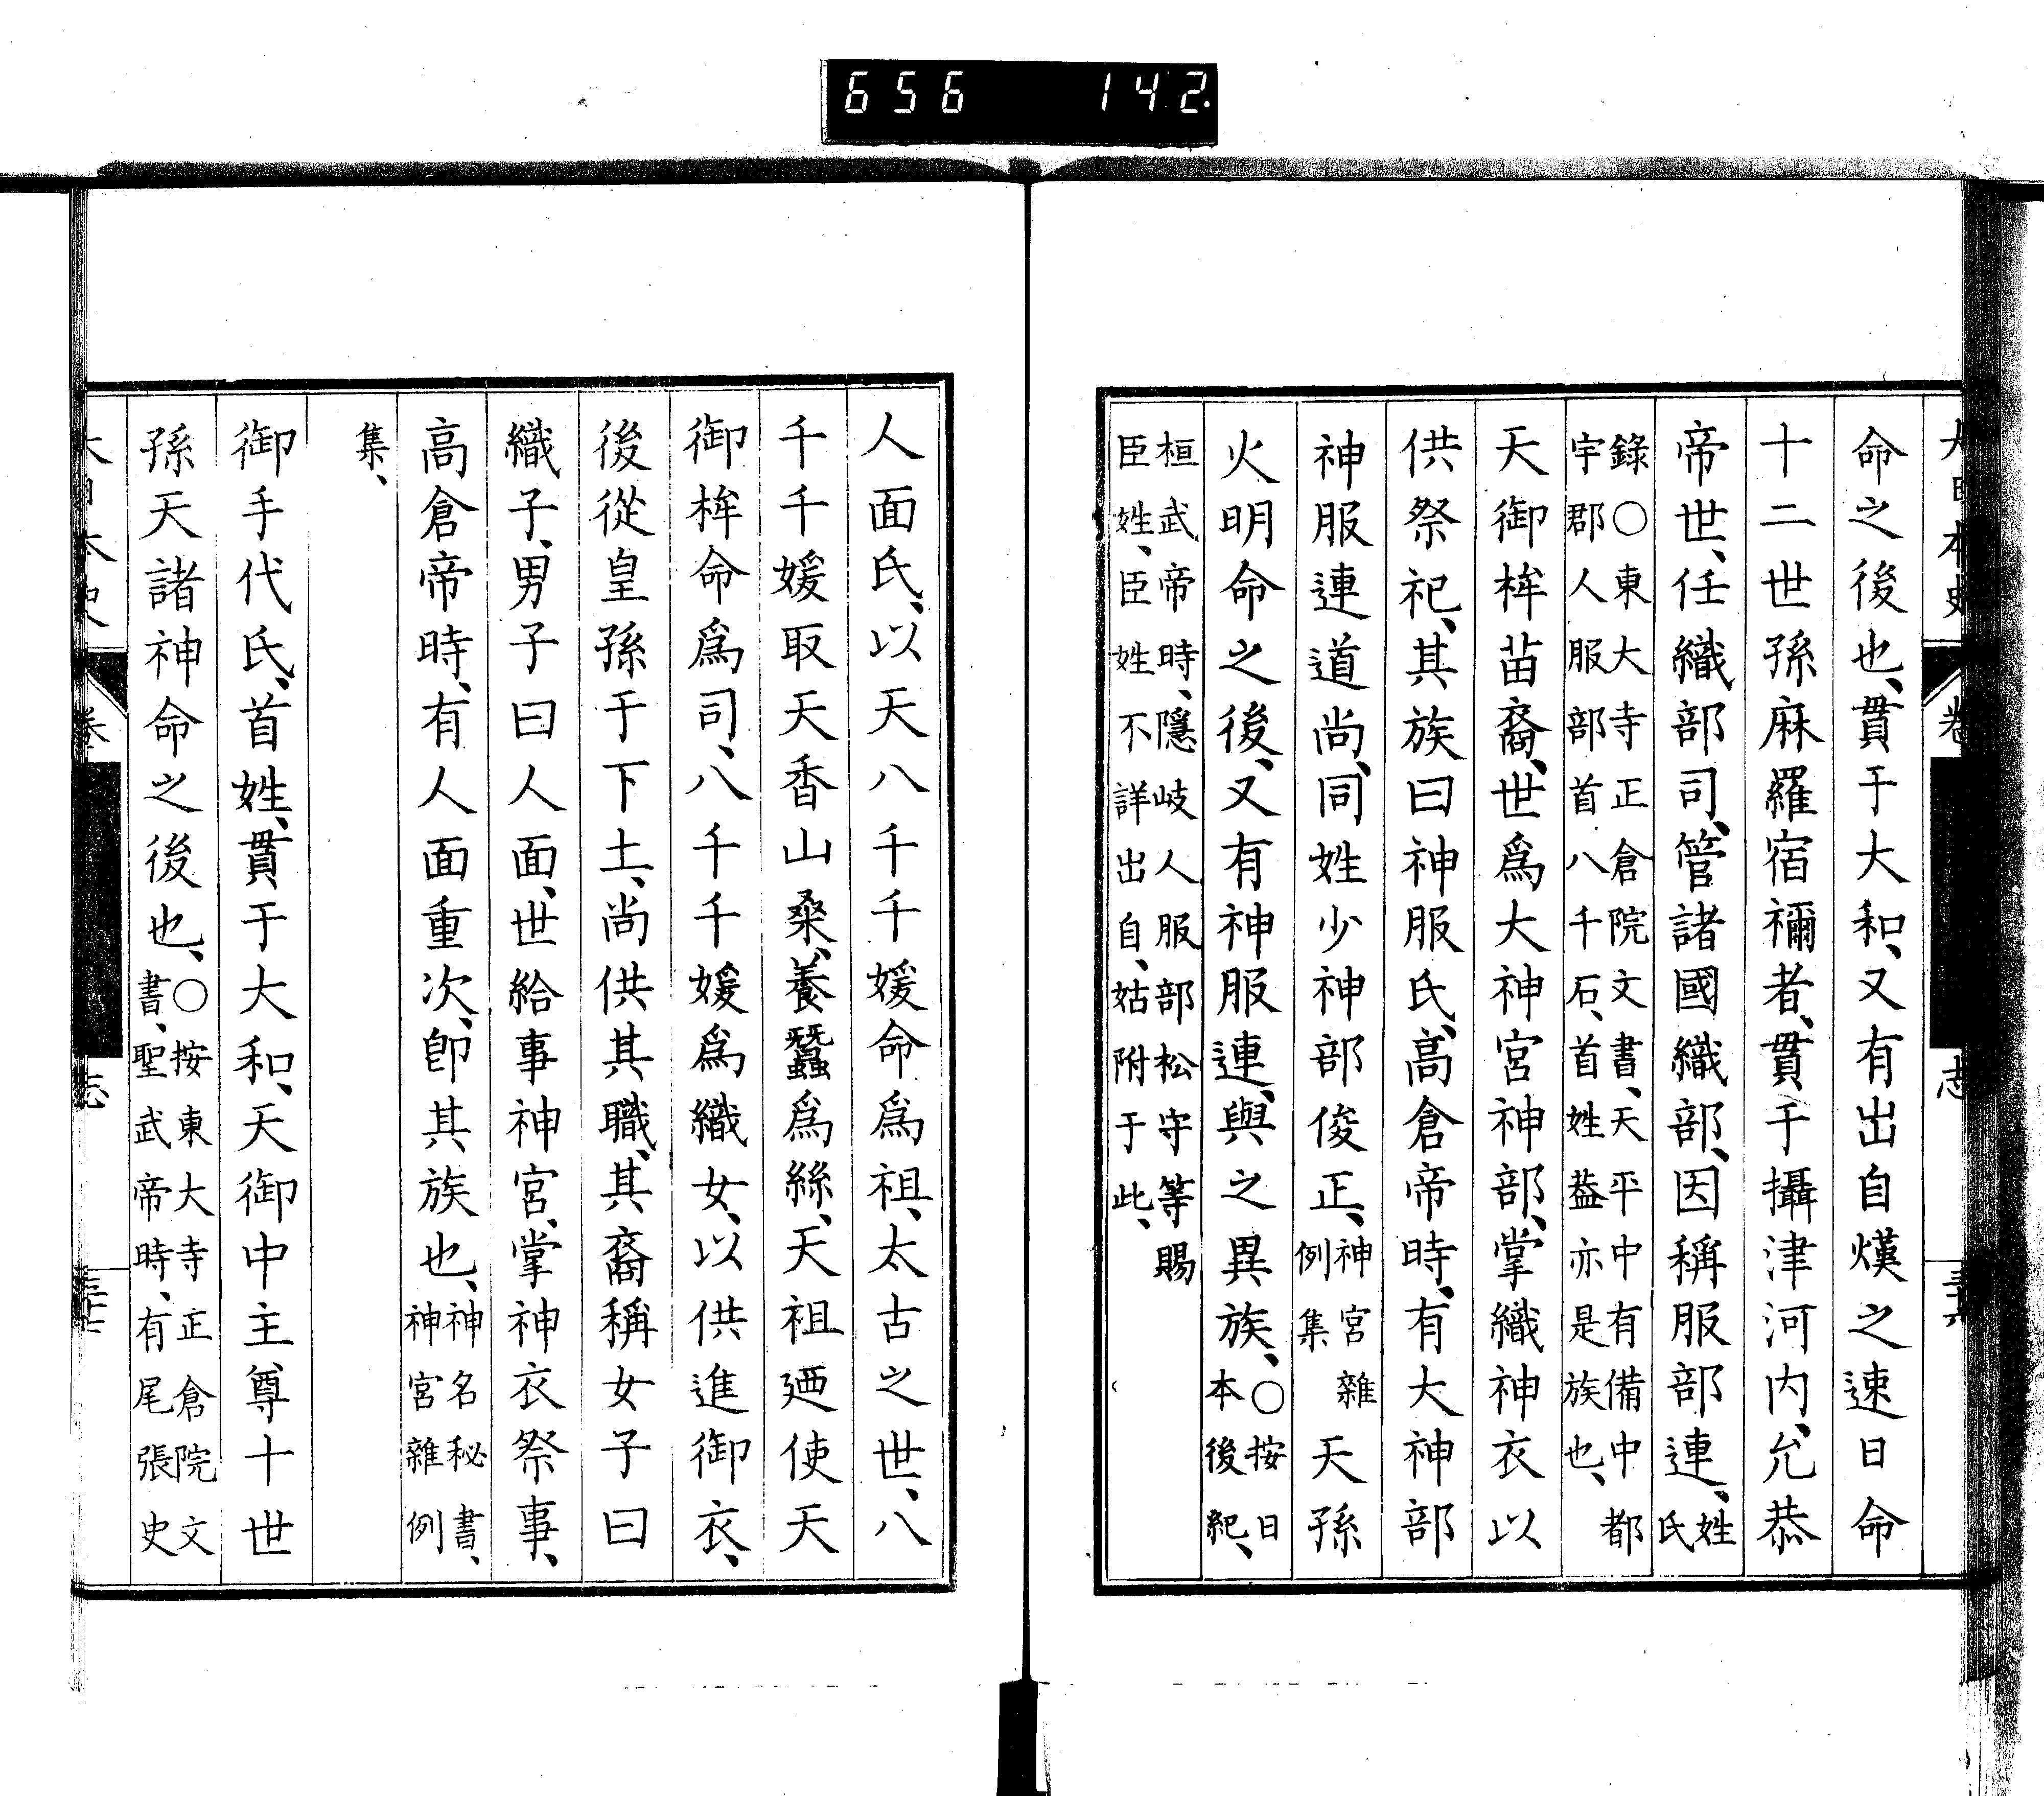 656 142
命之後也、貫于大和、又有出自熯之速日命
十二世孫麻羅宿禰者、貫于攝津河內、允恭
帝世、任織部司、管諸國織部、因稱服部連、姓氏
錄○東大寺正倉院文書、天平中有備中都
宇郡人服部首八千石、首姓葢亦是族也、
天御桙苗裔、世爲大神宮神部、掌織神衣以
供祭祀、其族曰神服氏、高倉帝時、有大神部
神服連道尚、同姓少神部俊正、神宮雜例集天孫
火明命之後、又有神服連、與之異族、○按日本後紀、
桓武帝時、隱岐人服部松守等賜
臣姓、臣姓不詳出自、姑附于此、
人面氏、以天八千千媛命爲祖、太古之世、八
千千媛取天香山桑、養蠶爲絲、天祖廼使天
御桙命爲司、八千千媛爲織女、以供進御衣、
後從皇孫于下土、尚供其職、其裔稱女子曰
織子、男子曰人面、世給事神宮、掌神衣祭事、
高倉帝時、有人面重次、卽其族也、神名秘書、神宮雜例
集、
御手代氏、首姓、貫于大和、天御中主尊十世
孫天諸神命之後也、○按東大寺正倉院文書、聖武帝時、有尾張史